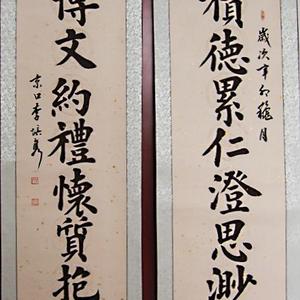 歲次辛卯龝月
積德累仁澄思渺
博文約禮懷質抱
京口李